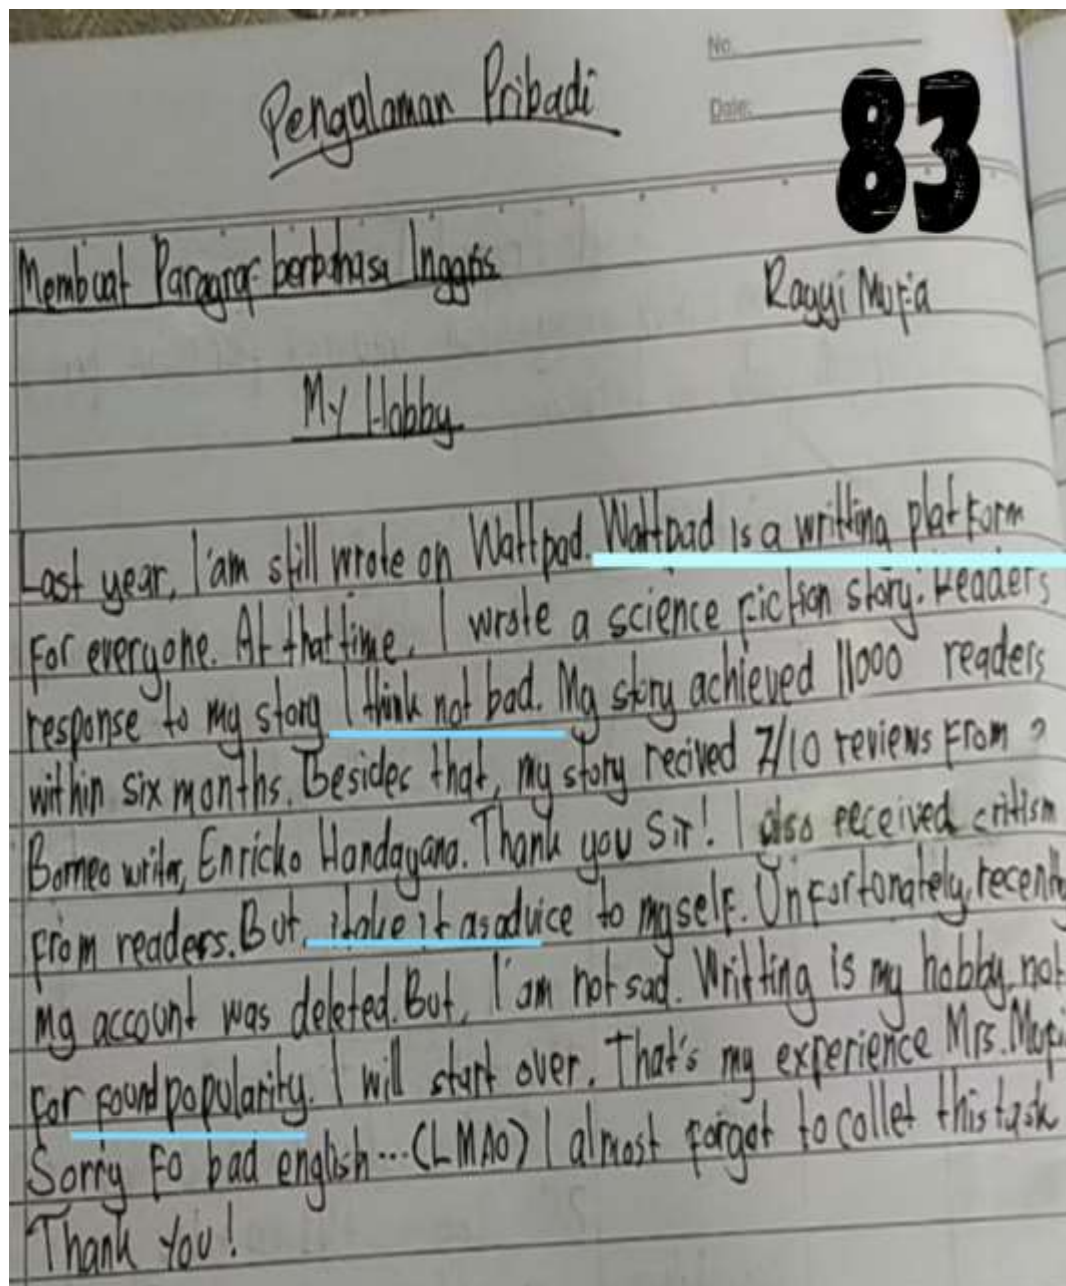 No.
Date:
83
Pengalaman Pribadi
Membuat Paragraf berbahasa Inggris
My Hobby
Last year, I'am still wrote on Wattpad. Wattpad is a writting platform
for everyone. At that time, I wrote a science fiction story. Readers
response to my story I think not bad. My story achieved 11000 readers
within six months. Besides that, my story recived 7/10 reviews from
Borneo writer, Enricko Handayana. Thank you Sir! I also received critism
from readers. But, itake it as advice to myself. Unfortonately, recently
my account was deleted. But, I'am not sad. Writting is my hobby, not
for found popularity. I will start over. That's my experience Mrs.
Sorry fo bad english...(LMAO) I almost forgot to collet this task
Thank You!